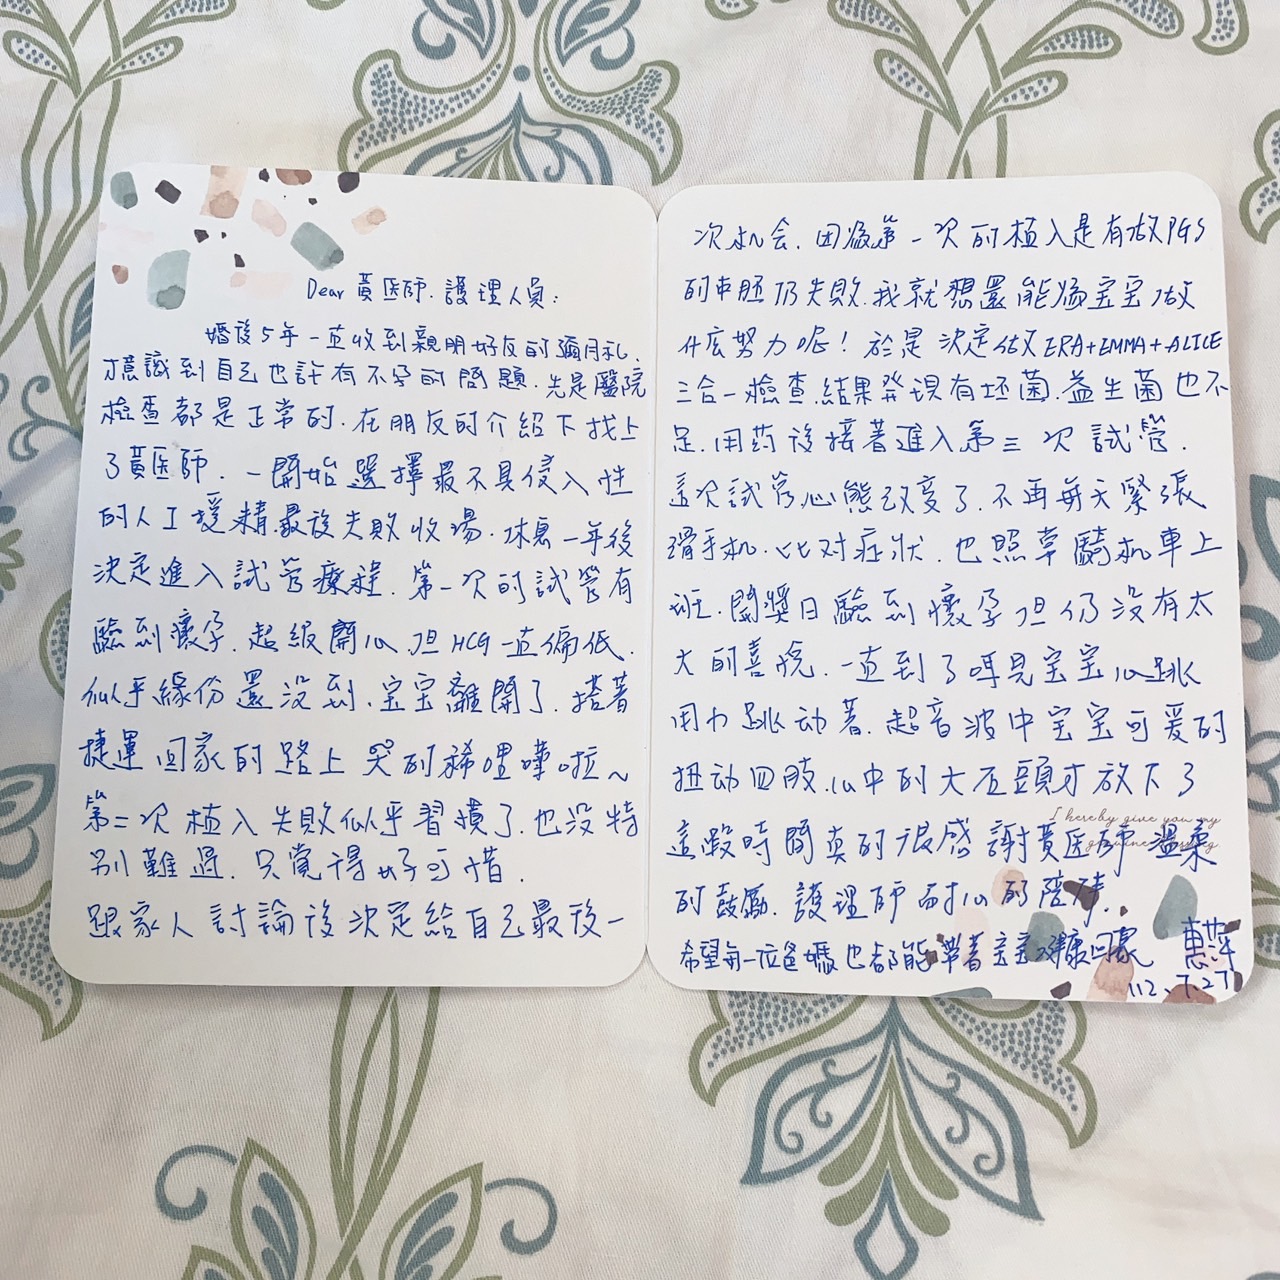 Dear 黃医師.護理人員:
婚後5年一直收到親朋好友的彌月礼,
才意識到自己也許有不孕的問題.先是醫院
檢查都是正常的.在朋友的介紹下找上
了黃医師.一開始選擇最不具侵入性
的人工受精.最後失敗收場.休息一年後
決定進入試管療程.第一次的試管有
驗到懷孕.超級開心但HCG一直偏低.
似乎緣份還没到.宝宝離開了.搭著
捷運回家的路上哭的稀哩嘩啦~
第二次植入失敗似乎習慣了.也没特
別難過.只覺得好可惜.
跟家人討論後決定給自己最後一
次机会.因為第一次的植入是有做PGS
的車胚仍失敗.我就想還能為宝宝做
什麼努力呢!於是決定做ERA+EMMA+ALICE
三合一檢查.結果發現有坏菌.益生菌也不
足.用药後接著進入第三次試管.
這次試管心態改变了.不再每天緊張
滑手机.比对症狀.也照草騎机車上
班.開獎日驗到懷孕但仍没有太
大的喜悅.一直到了听見宝宝心跳
用力跳动著.超音波中宝宝可爱的
扭动四肢.心中的大石頭才放下了
I hereby give you my
這段時間真的很感謝黃医師溫柔
genuine
的鼓勵.護理師耐心的陪伴.
希望每一位爸媽也都能帶著宝宝健康回家 惠萍
112.7.27